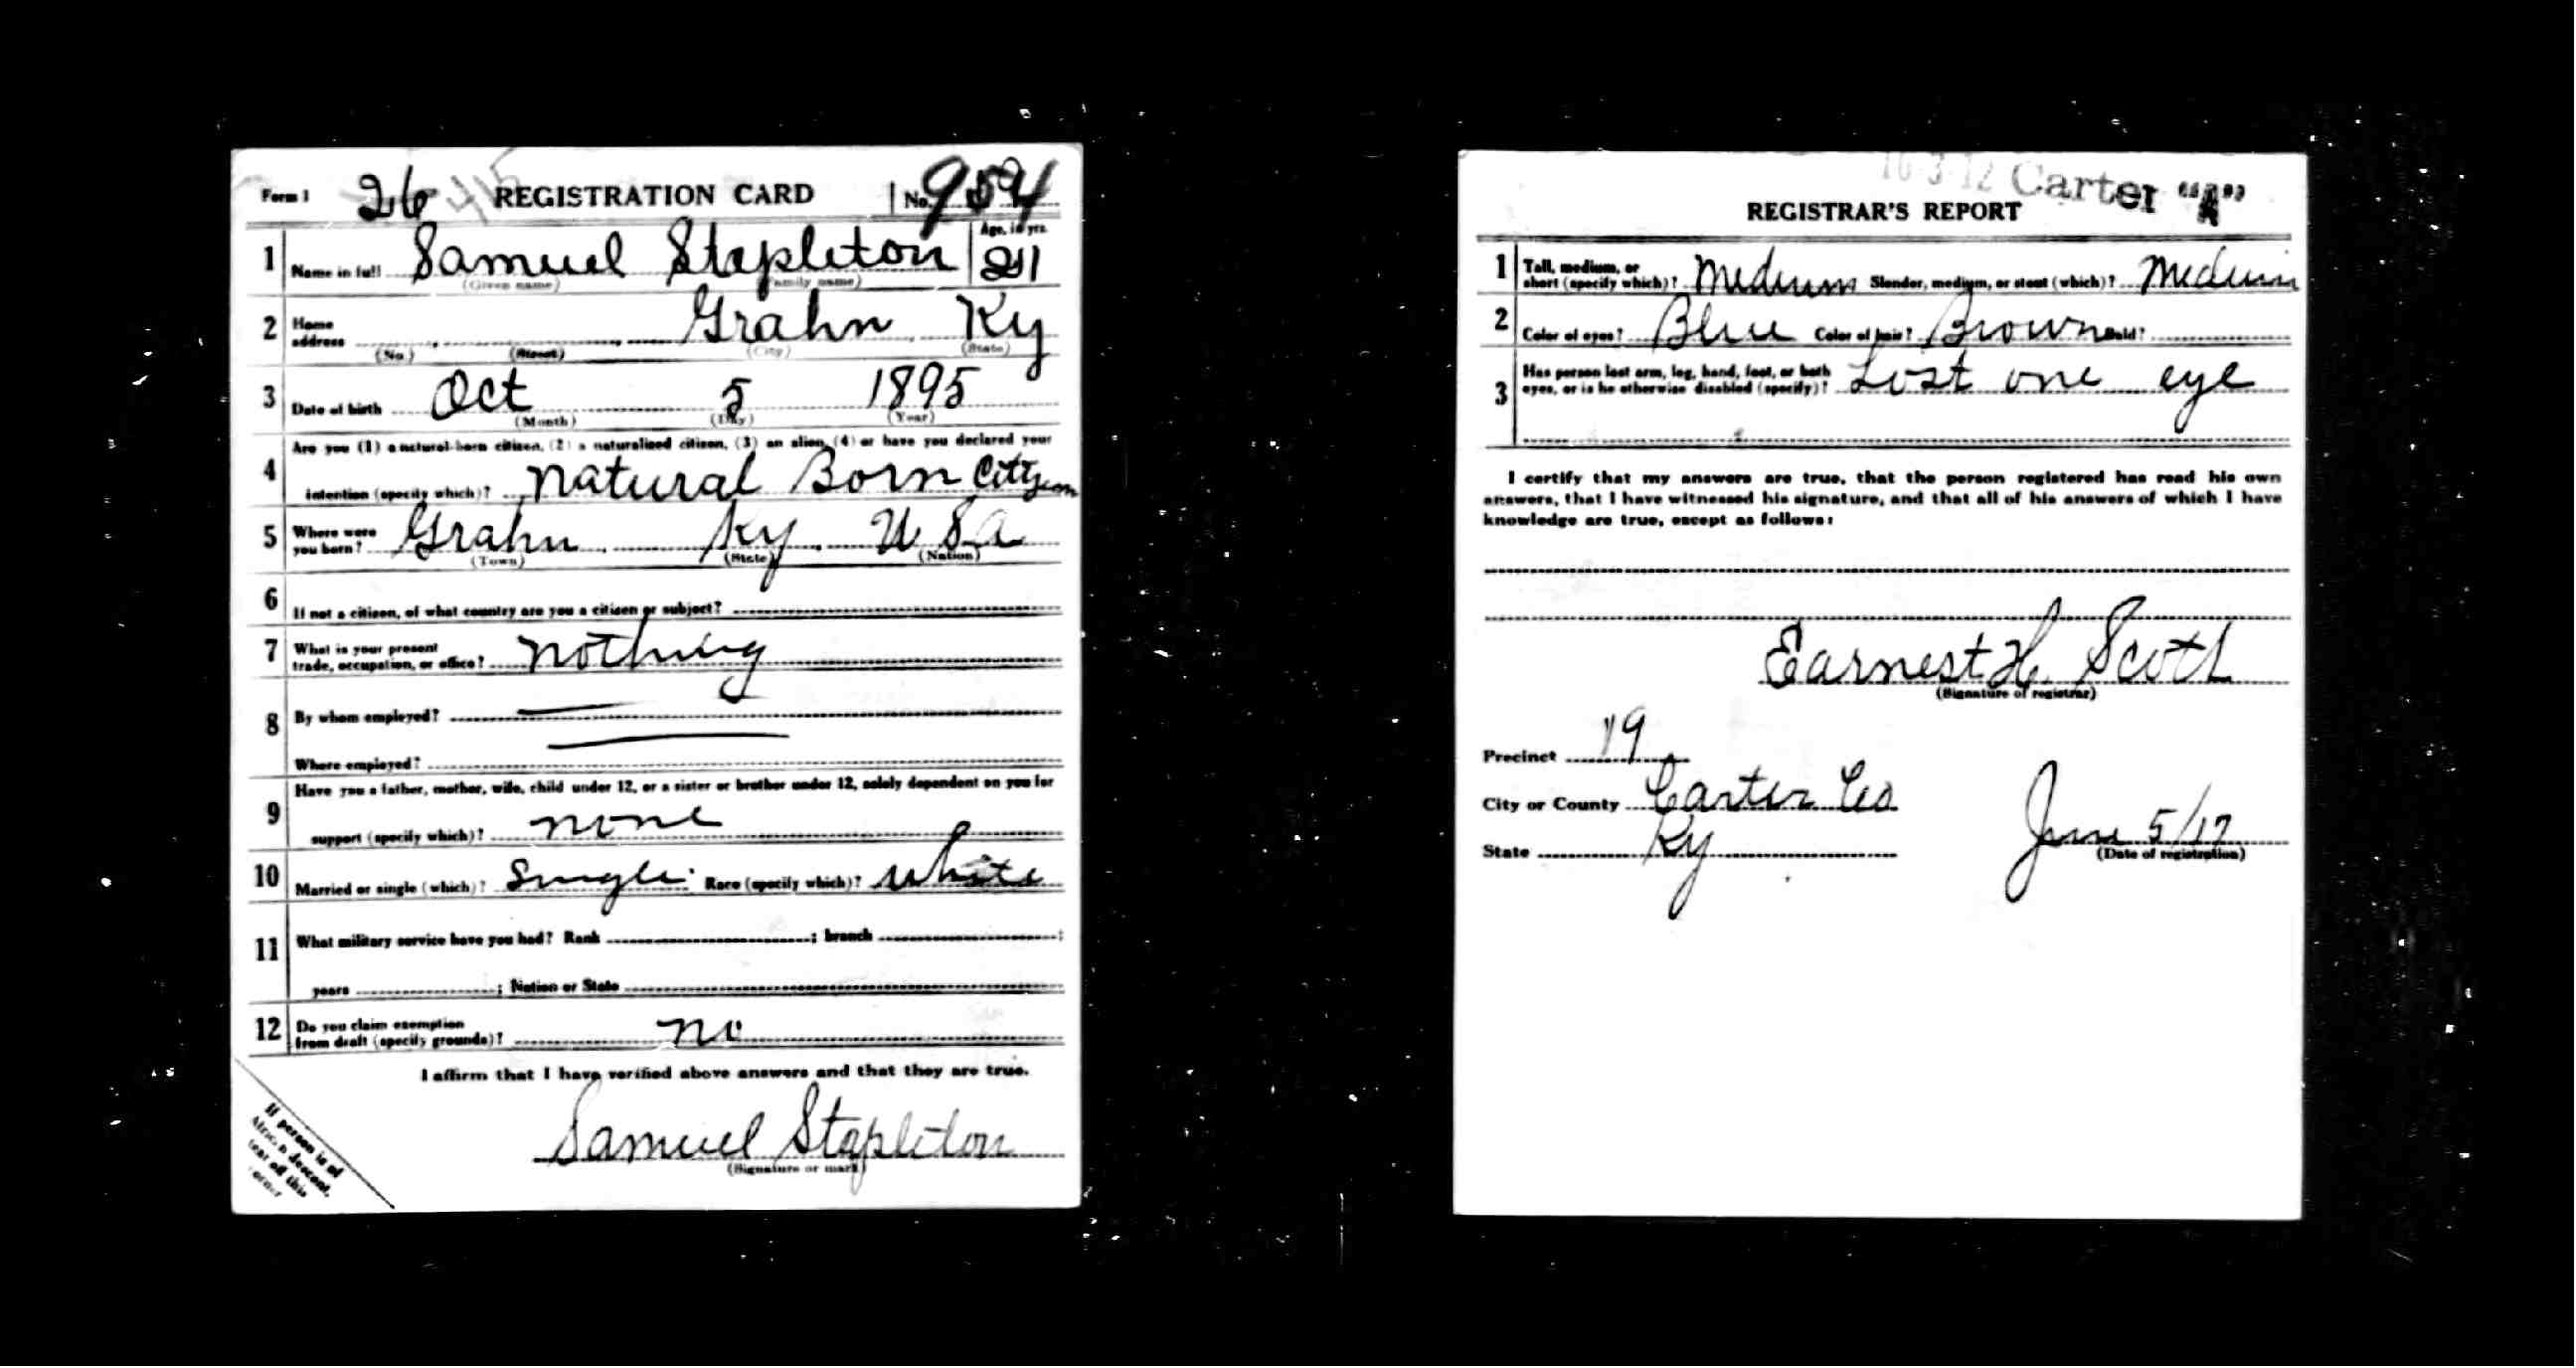 Form 1 26 415 REGISTRATION CARD No. 954
1 Name in full Samuel Stapleton Age, in yrs. 21
(Given name) (Family name)
2 Home address Grahn Ky
(No.) (Street) (City) (State)
3 Date of birth Oct 5 1895
(Month) (Day) (Year)
4 Are you (1) a natural-born citizen, (2) a naturalized citizen, (3) an alien, (4) or have you declared your
intention (specify which)? Natural Born Citizen
5 Where were you born? Grahn Ky U S a
(Town) (State) (Nation)
6 If not a citizen, of what country are you a citizen or subject?
7 What is your present trade, occupation, or office? nothing
8 By whom employed?
Where employed?
9 Have you a father, mother, wife, child under 12, or a sister or brother under 12, solely dependent on you for
support (specify which)? none
10 Married or single (which)? Single Race (specify which)? White
11 What military service have you had? Rank ; branch ;
years ; Nation or State
12 Do you claim exemption from draft (specify grounds)? no
I affirm that I have verified above answers and that they are true.
Samuel Stapleton
(Signature or mark)
If person is of
African descent,
tear off this
corner
Carter "A"
REGISTRAR'S REPORT
1 Tall, medium, or short (specify which)? Medium Slender, medium, or stout (which)? Medium
2 Color of eyes? Blue Color of hair? Brown Bald?
3 Has person lost arm, leg, hand, foot, or both eyes, or is he otherwise disabled (specify)? Lost one eye
I certify that my answers are true, that the person registered has read his own
answers, that I have witnessed his signature, and that all of his answers of which I have
knowledge are true, except as follows:
Earnest H. Scott
(Signature of registrar)
Precinct 19
City or County Carter Co
State Ky June 5/17
(Date of registration)